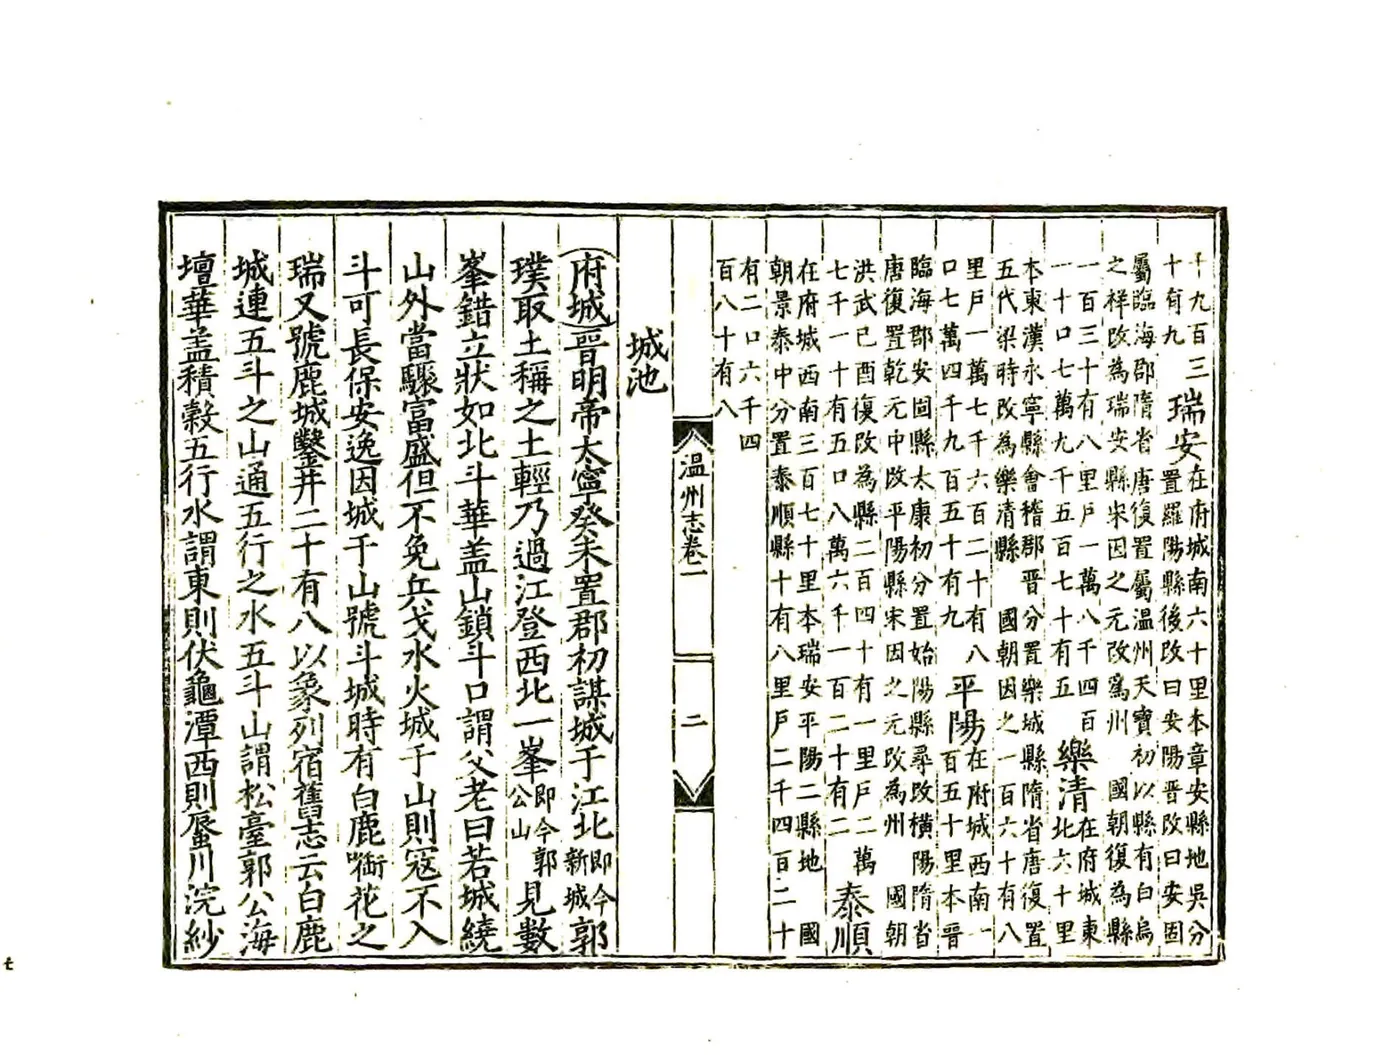 十九百三
十有九
瑞安
在府城南六十里本章安縣地吳分
置羅陽縣後改曰安陽晉改曰安固
屬臨海郡隋省唐復置屬温州天寶初以縣有白烏
之祥改為瑞安縣宋因之元改爲州　國朝復為縣
一百三十有八里戸一萬八千四百
一十口七萬九千五百七十有五
樂清
在府城東
北六十里
本東漢永寧縣會稽郡晉分置樂城縣隋省唐復置
五代梁時改為樂清縣　國朝因之一百六十有八
里戸一萬七千六百二十有八
口七萬四千九百五十有九
平陽
在府城西南一
百五十里本晉
臨海郡安固縣太康初分置始陽縣尋改横陽隋省
唐復置乾元中改平陽縣宋因之元改為州　國朝
洪武己酉復改為縣二百四十有一里戸二萬
七千一十有五口八萬六千一百二十有二
泰順
在府城西南三百七十里本瑞安平陽二縣地　國
朝景泰中分置泰順縣十有八里戸二千四百二十
有二口六千四
百八十有八
温州志卷一
二
城池
府城晉明帝太寧癸未置郡初謀城于江北即今新城郭
璞取土稱之土輕乃過江登西北一峯即今郭公山見數
峯錯立狀如北斗華盖山鎖斗口謂父老曰若城繞
山外當驟富盛但不免兵戈水火城于山則寇不入
斗可長保安逸因城于山號斗城時有白鹿啣花之
瑞又號鹿城鑿井二十有八以象列宿舊志云白鹿
城連五斗之山通五行之水五斗山謂松臺郭公海
壇華盖積穀五行水謂東則伏龜潭西則蜃川浣紗